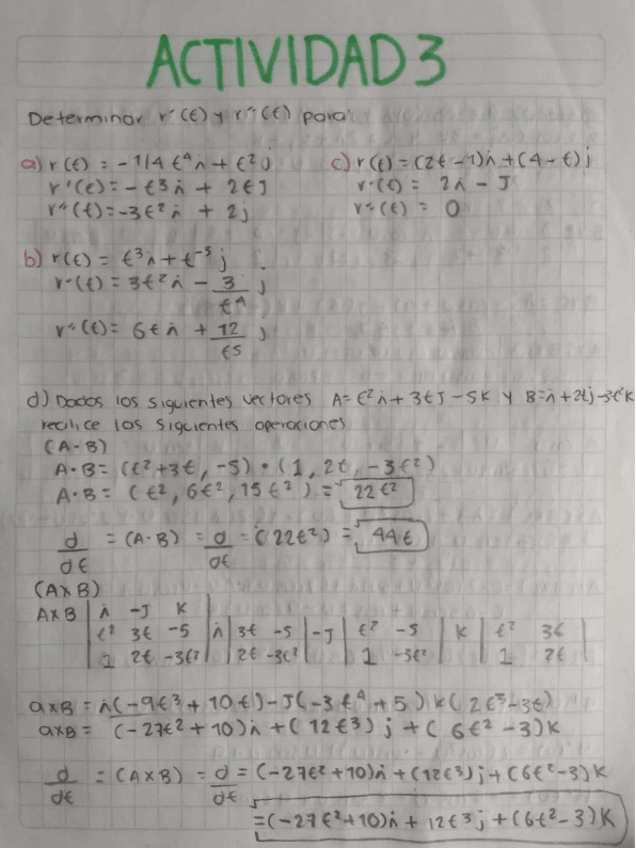 ACTIVIDAD 3
Determinar r'(t) y r''(t) para:
a) r(t) = -1/4 t⁴i + t²j
r'(t) = -t³i + 2tj
r''(t) = -3t²i + 2j
c) r(t) = (2t-1)i + (4-t)j
r'(t) = 2i - J
r''(t) = 0
b) r(t) = t³i + t⁻³j
r'(t) = 3t²i - 3/t⁴ j
r''(t) = 6ti + 12/t5 j
d) Dados los siguientes vectores A= t²i + 3tJ - 5K y B=i+2tj-3t²K
realice las siguientes operaciones
(A·B)
A·B = (t²+3t, -5) • (1, 2t, -3t²)
A·B = (t², 6t², 15t²) = 22t²
d/dt = (A·B) = d/dt = (22t²) = 44t
(AXB)
AXB | i -J K
t² 3t -5 | i | 3t -5 | -J | t² -5 | K | t² 3t |
1 2t -3t² | | 2t -3t² | | 1 -3t² | | 1 2t |
axB = i(-9t³+10t)-J(-3t⁴+5)k(2t³-3t)
axB = (-27t²+10)i + (12t³)j + (6t²-3)K
d/dt = (AXB) = d/dt = (-27t²+10)i + (12t³)j + (6t²-3)K
=(-27t²+10)i + 12t³j + (6t²-3)K